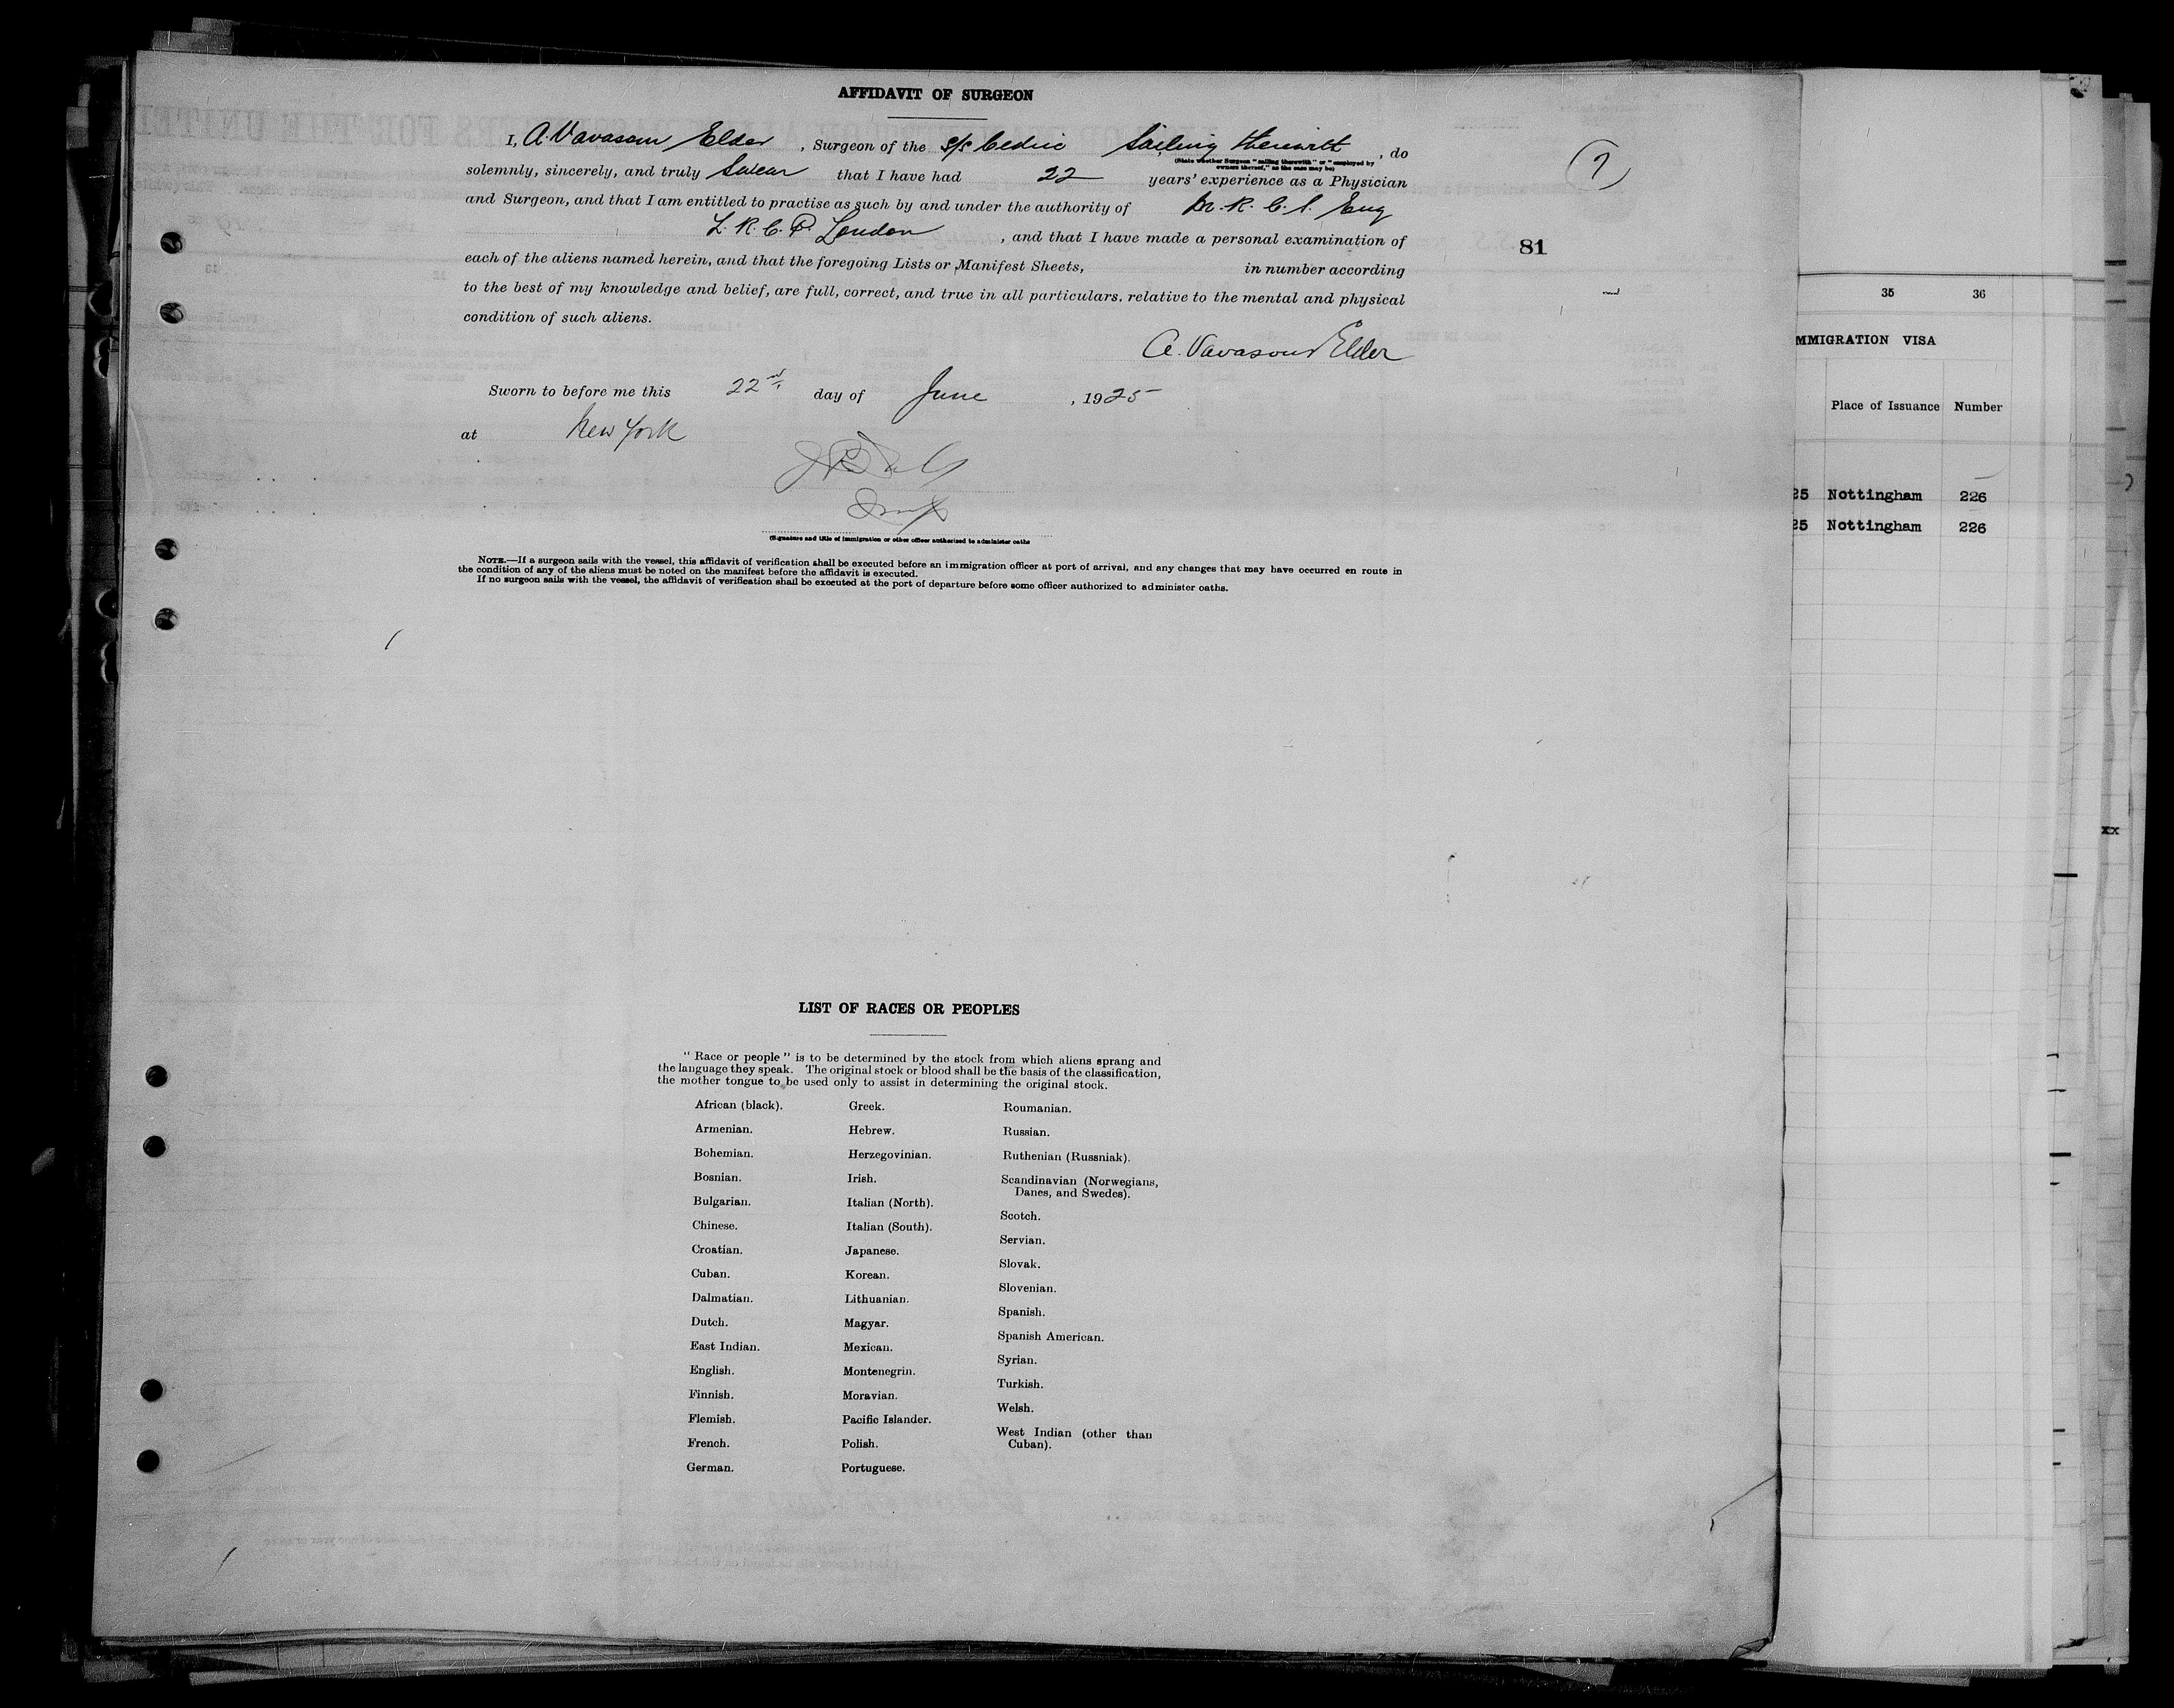 AFFIDAVIT OF SURGEON
I, A. Vavasour Elder, Surgeon of the s/s Cedric Sailing therewith, do
(State whether Surgeon "sailing therewith" or "employed by
owners thereof," as the case may be)
solemnly, sincerely, and truly Swear that I have had 22 years' experience as a Physician
and Surgeon, and that I am entitled to practise as such by and under the authority of M.R.C.S. Eng
L.R.C.P. London, and that I have made a personal examination of
each of the aliens named herein, and that the foregoing Lists or Manifest Sheets, in number according
to the best of my knowledge and belief, are full, correct, and true in all particulars, relative to the mental and physical
condition of such aliens.
A. Vavasour Elder
Sworn to before me this 22nd day of June, 1925
at New York
(Signature and title of immigration or other officer authorized to administer oaths
NOTE.—If a surgeon sails with the vessel, this affidavit of verification shall be executed before an immigration officer at port of arrival, and any changes that may have occurred en route in
the condition of any of the aliens must be noted on the manifest before the affidavit is executed.
If no surgeon sails with the vessel, the affidavit of verification shall be executed at the port of departure before some officer authorized to administer oaths.
7
81
LIST OF RACES OR PEOPLES
"Race or people" is to be determined by the stock from which aliens sprang and
the language they speak. The original stock or blood shall be the basis of the classification,
the mother tongue to be used only to assist in determining the original stock.
African (black).
Armenian.
Bohemian.
Bosnian.
Bulgarian.
Chinese.
Croatian.
Cuban.
Dalmatian.
Dutch.
East Indian.
English.
Finnish.
Flemish.
French.
German.
Greek.
Hebrew.
Herzegovinian.
Irish.
Italian (North).
Italian (South).
Japanese.
Korean.
Lithuanian.
Magyar.
Mexican.
Montenegrin.
Moravian.
Pacific Islander.
Polish.
Portuguese.
Roumanian.
Russian.
Ruthenian (Russniak).
Scandinavian (Norwegians,
Danes, and Swedes).
Scotch.
Servian.
Slovak.
Slovenian.
Spanish.
Spanish American.
Syrian.
Turkish.
Welsh.
West Indian (other than
Cuban).
35 36
MMIGRATION VISA
Place of Issuance Number
25 Nottingham 226
25 Nottingham 226
xx